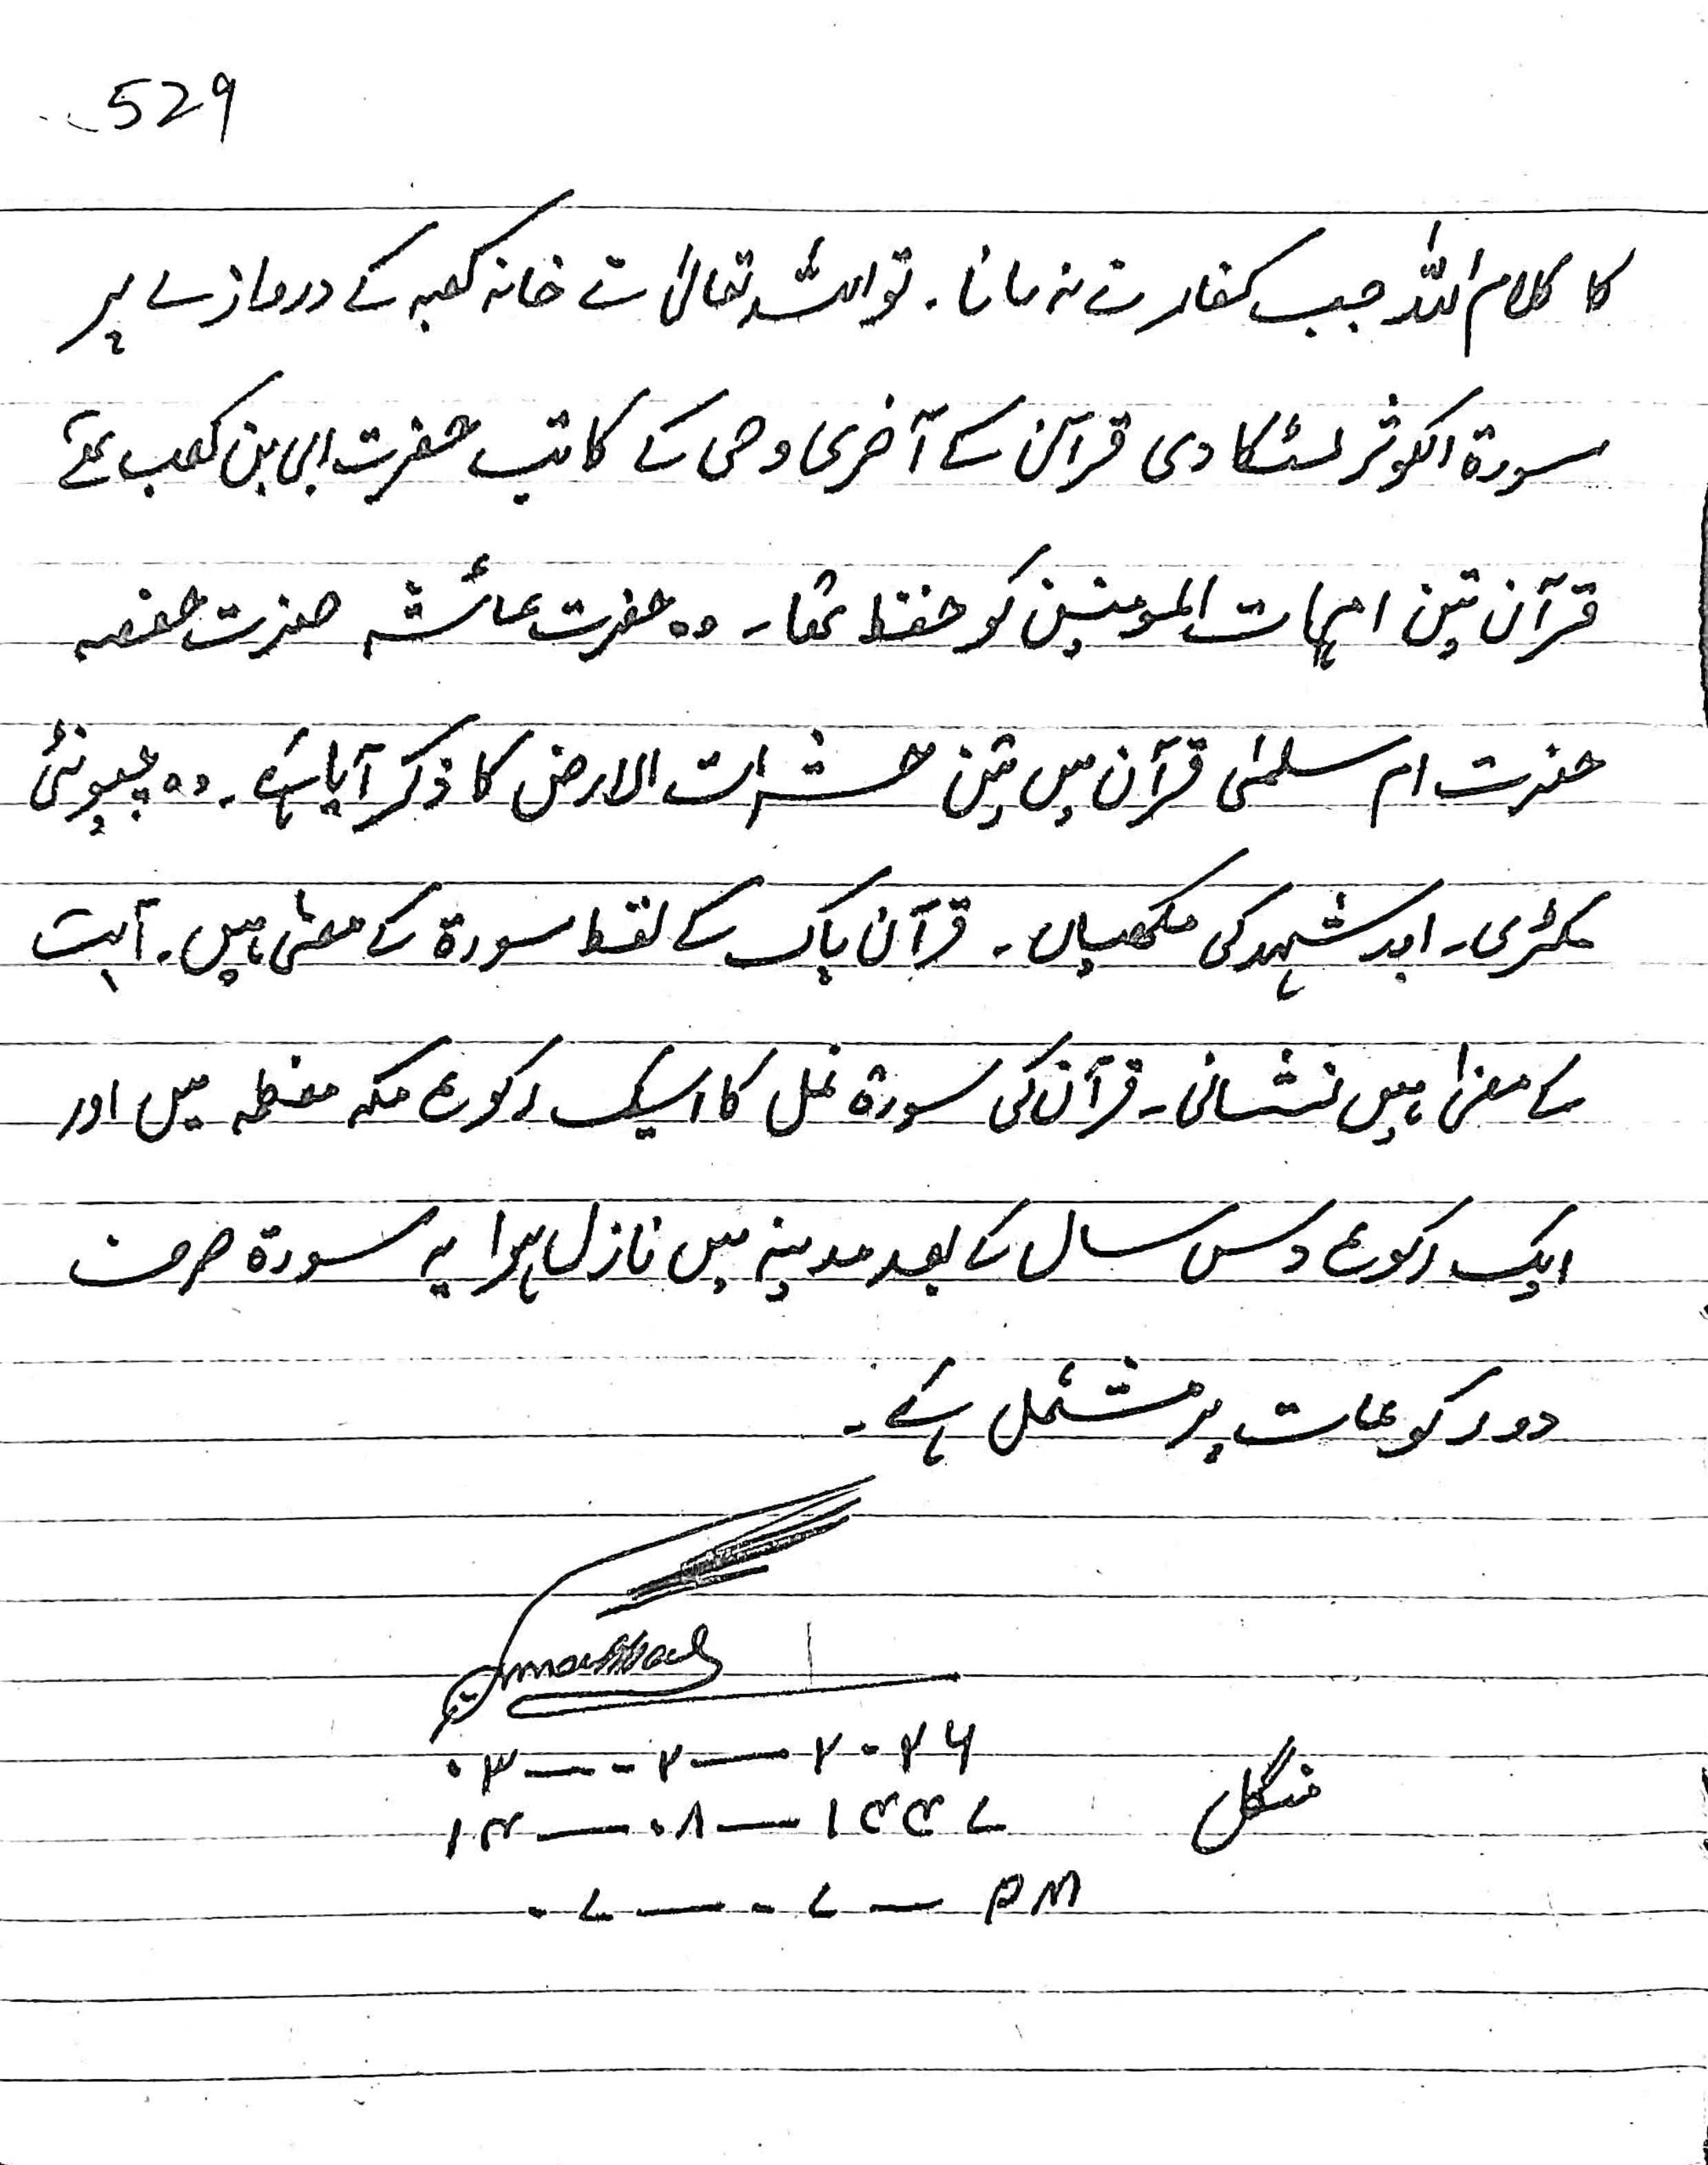 529
کا کلام اللہ جب کفار نے نہ مانا۔ تو اللہ تعالیٰ نے خانہ کعبہ کے دروازے پر
سورۃ الکوثر لٹکا دی قرآن کے آخری وحی کے کاتب حضرت ابی بن کعب تھے
قرآن تین امہات المومنین کو حفظ تھا۔ وہ حضرت عائشہ حضرت حفصہ
حضرت ام سلمیٰ قرآن میں تین حشرات الارض کا ذکر آیا ہے۔ وہ چیونٹی
مکڑی۔ اور شہد کی مکھیاں۔ قرآن پاک کے لفظ سورۃ کے معنی ہیں۔ آیت
کے معنیٰ ہیں نشانی۔ قرآن کی سورۃ نمل کا ایک رکوع مکہ معظمہ میں اور
ایک رکوع دس سال کے بعد مدینہ میں نازل ہوا یہ سورۃ صرف
دو رکوعات پر مشتمل ہے۔
۰۳ — ۰۲ — ۲۰۲۶
منگل
۱۴ — ۰۸ — ۱۴۴۷
۰۷ — ۰۷ — PM